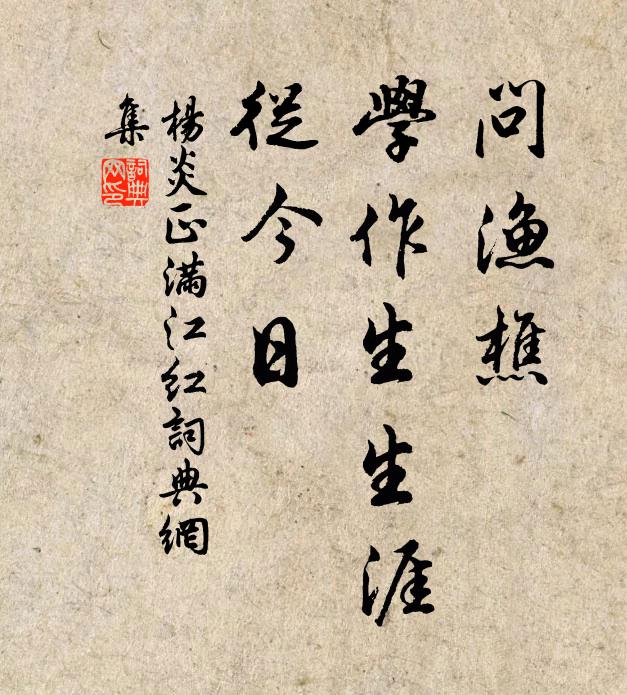 問漁樵
學作生生涯
從今日
楊炎正滿江紅詞典網
集
詞典
网印